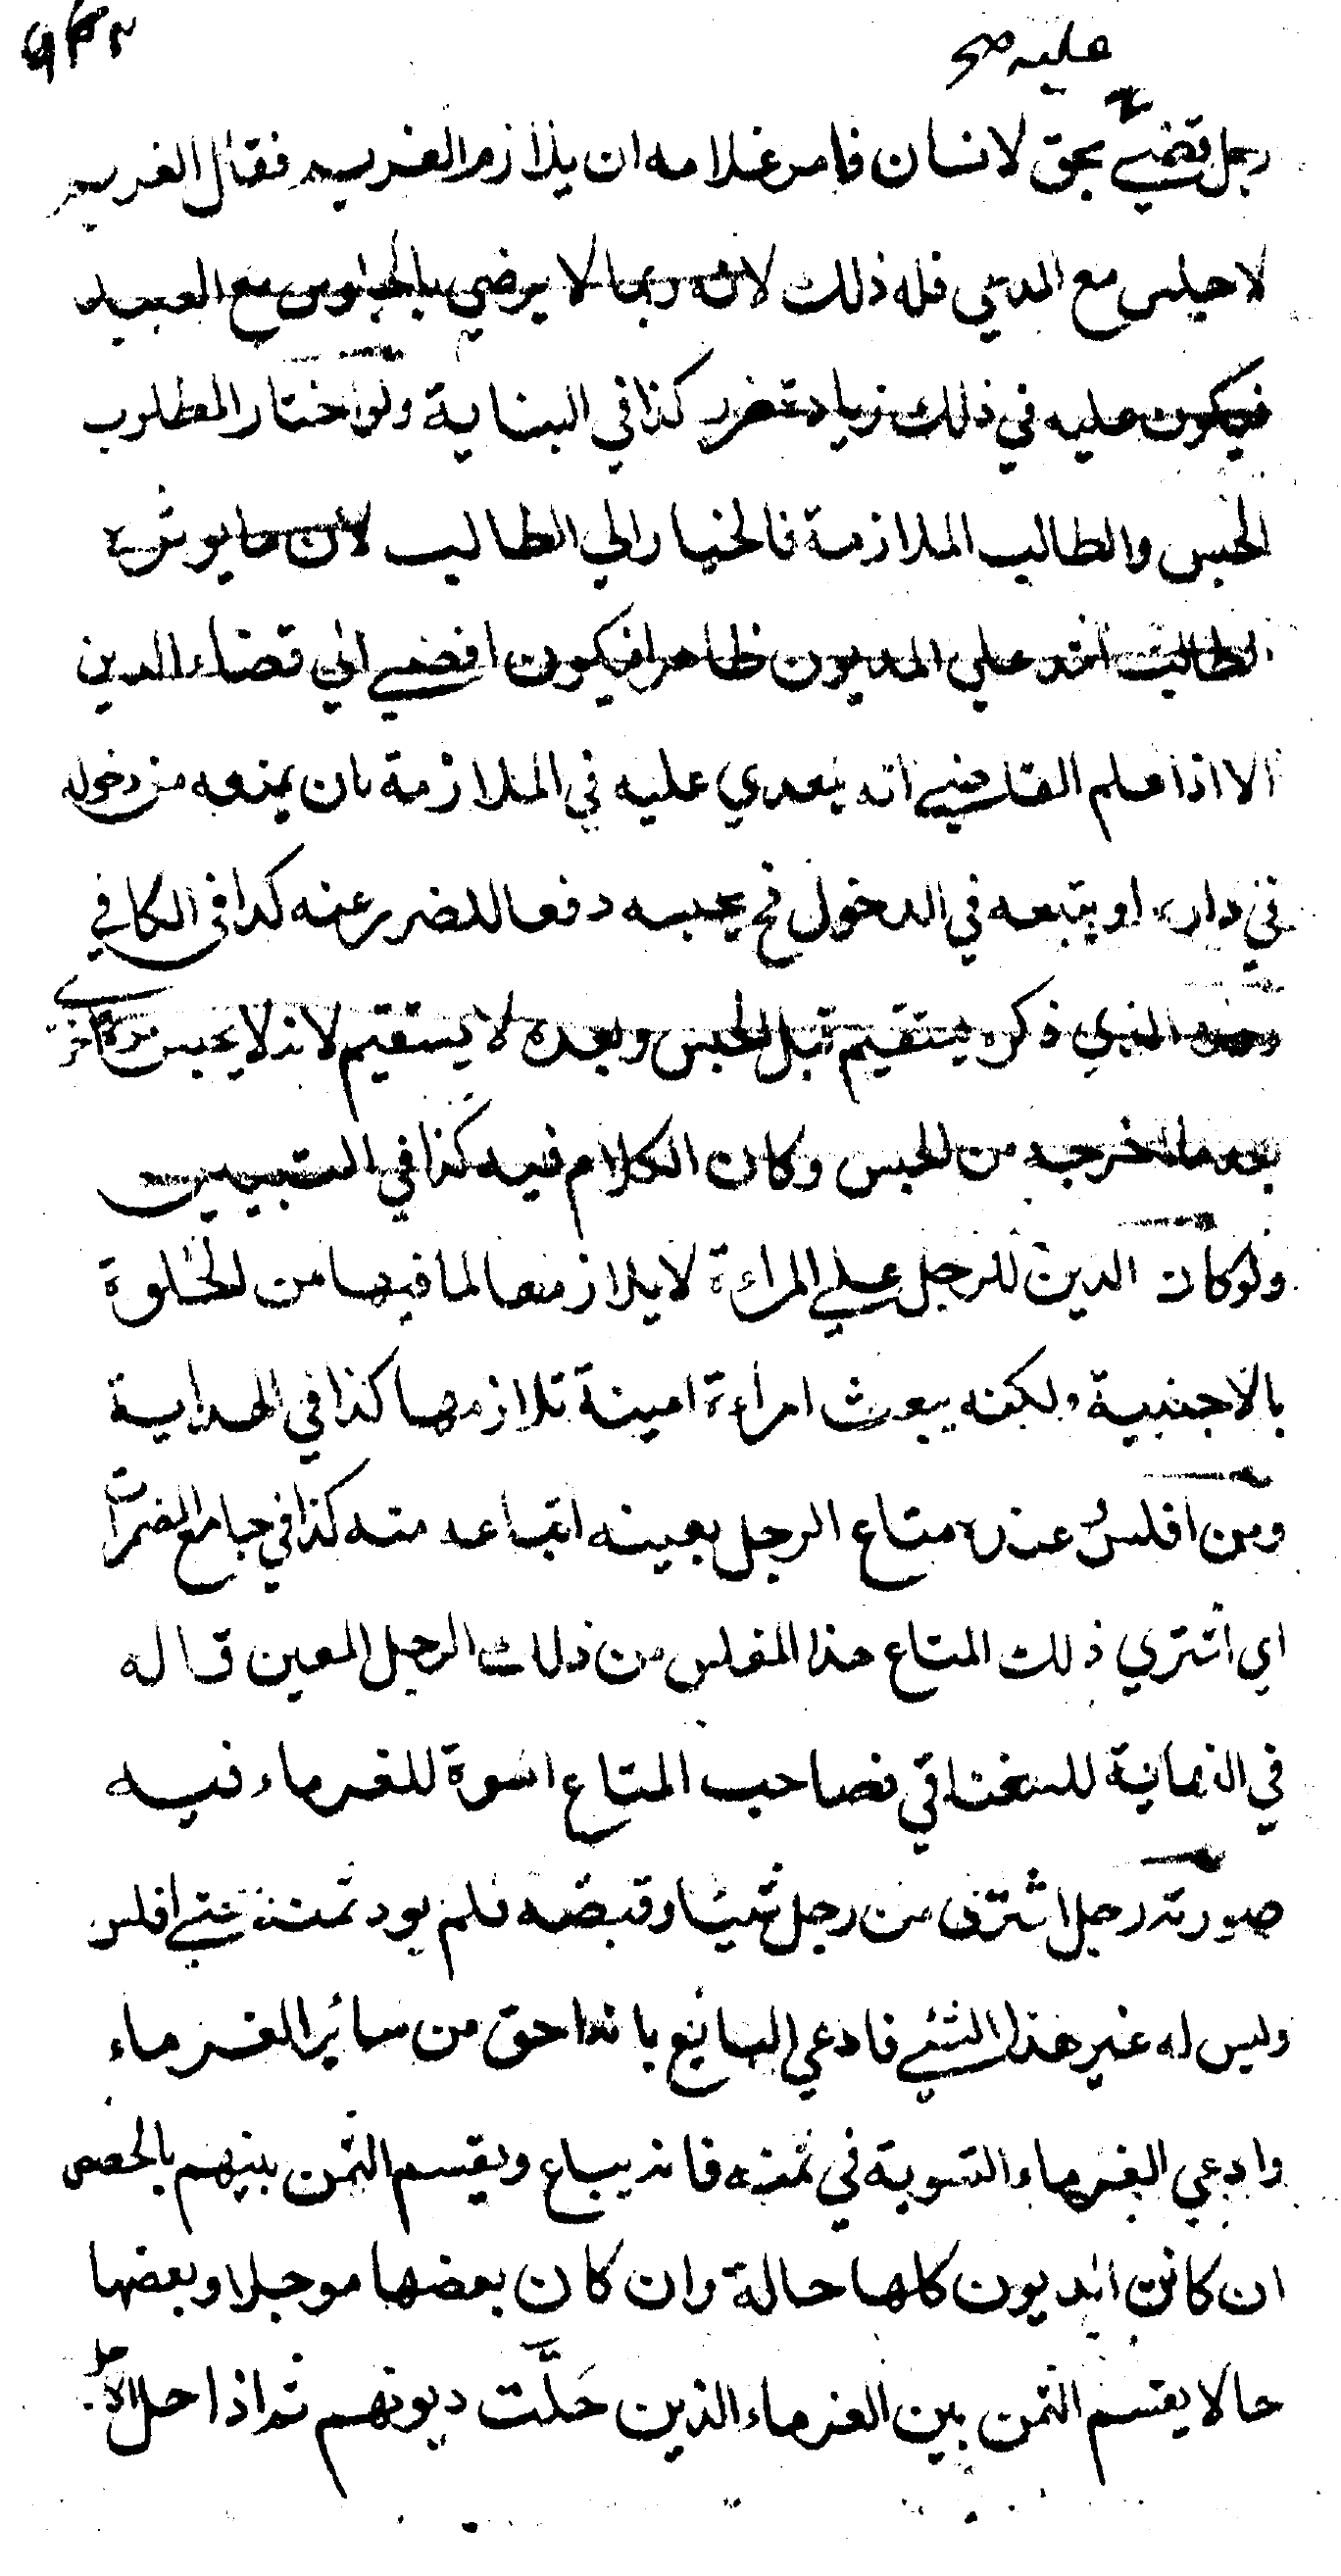 عليه صح
رجل قضي بحق لانسان فامر غلامه ان يلازم الغريم فقال الغريم
لا اجلس مع المدعي فله ذلك لانه ربما لا يرضي بالجلوس مع العبيد
فيكون عليه في ذلك زيادة ضرر كذا في البناية ولو اختار المطلوب
الحبس والطالب الملازمة فالخيار الي الطالب لان ما يوثره
الطالب اشد علي المديون ظاهرا فيكون افضي الي قضاء الدين
الا اذا علم القاضي انه يتعدي عليه في الملازمة بان يمنعه من دخوله
في داره او يتبعه في الدخول فح يحبسه دفعا للضرر عنه كذا في الكافي
وهذه الذي ذكره يستقيم قبل الحبس وبعده لا يستقيم لانه لا يحبس مرة اخري
بعد ما اخرجه من الحبس وكان الكلام فيه كذا في التبيين
ولو كان الدين للرجل علي المراءة لا يلازمها لما فيها من الخلوة
بالاجنبية ولكنه يبعث امراءة امينة تلازمها كذا في الهداية
ومن افلس وعنده متاع الرجل بعينه ابتاعه منه كذا في جامع المضمرات
اي اشتري ذلك المتاع هذا المفلس من ذلك الرجل المعين قاله
في النهاية للسغناقي فصاحب المتاع اسوة للغرماء فيه
صورته رجل اشتري من رجل شيئا وقبضه فلم يود ثمنه حتي افلس
وليس له غير هذا الشئي فادعي البائع بانه احق من سائر الغرماء
وادعي الغرماء التسوية في ثمنه فانه يباع ويقسم الثمن بينهم بالحصص
ان كانت الديون كلها حالة وان كان بعضها موجلا وبعضها
حالا يقسم الثمن بين الغرماء الذين حَلَّت ديونهم ثم اذا حل الاجل